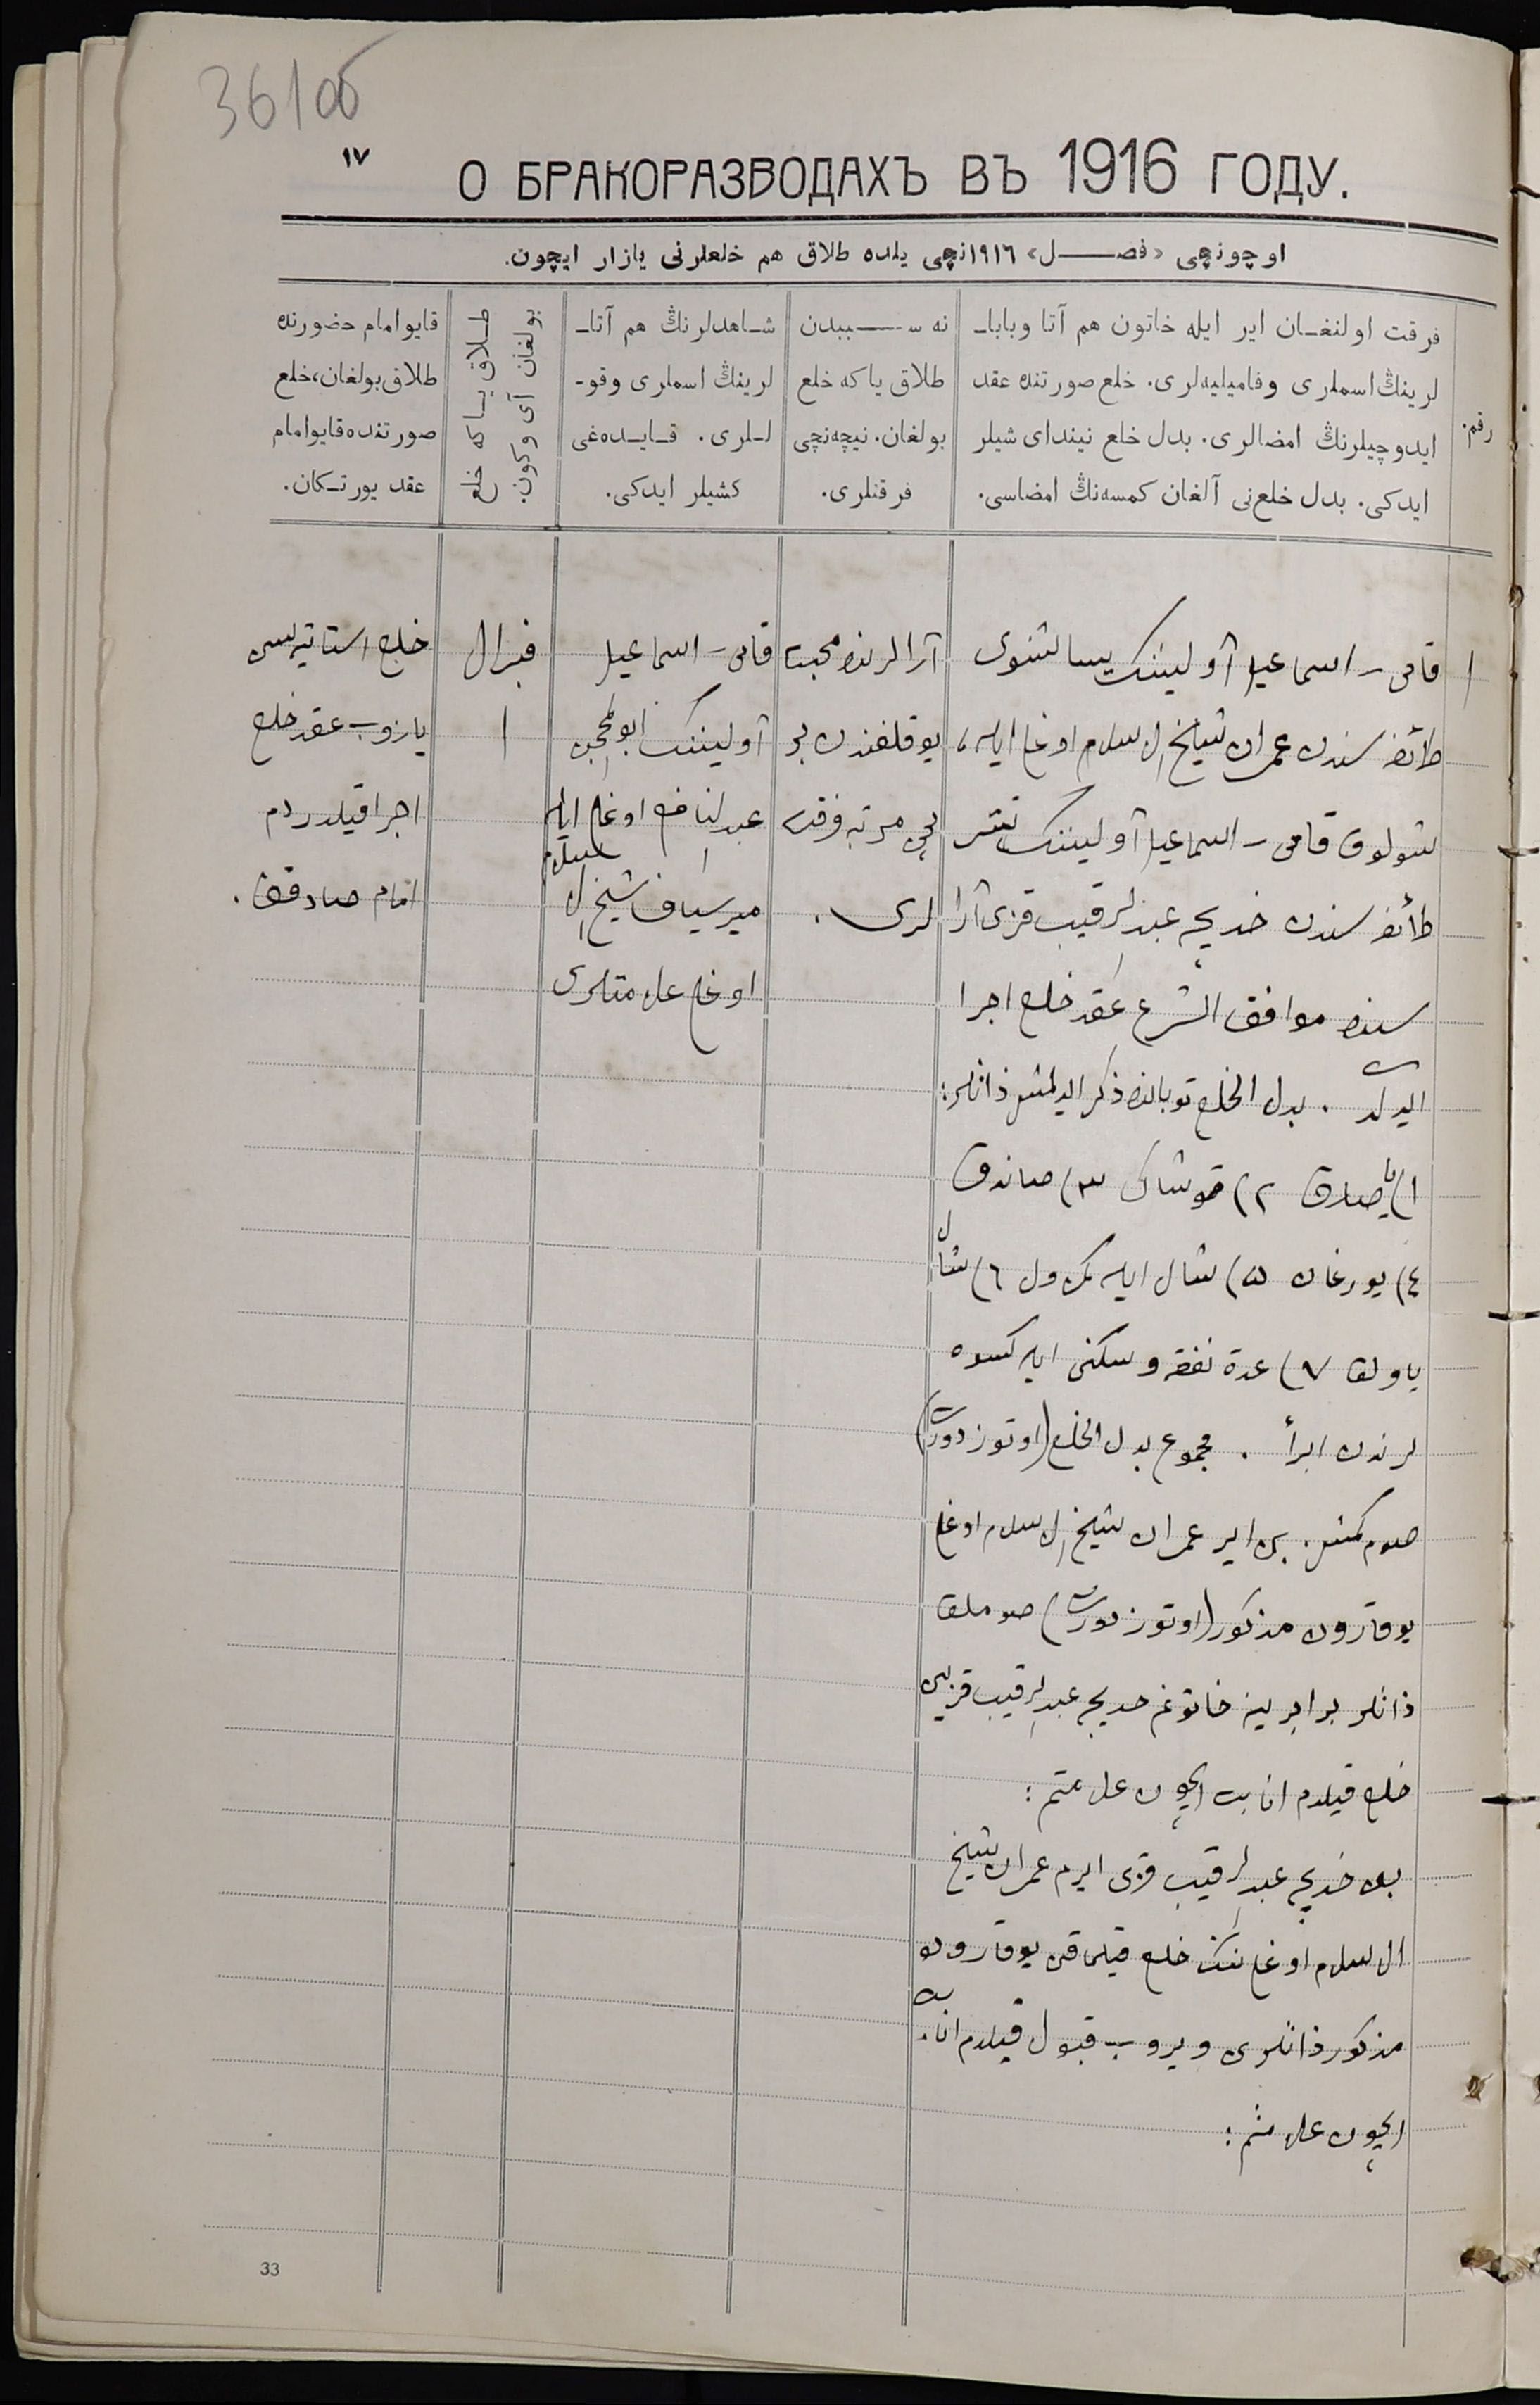 361об
١٧
О БРАКОРАЗВОДАХЪ ВЪ 1916 ГОДУ.
اوچونچی «فصـــل» ١٩١٦نچی یلده طلاق هم خلعلرنی یازار ایچون.
رقم.
فرقت اولنغـان ایر ایله خاتون هم آتا وبابا۔
لرینڭ اسملری وفامیلیه‌لری. خلع صورتنده عقد
ایدوچیلرنڭ امضالری. بدل خلع نیندای شیلر
ایدكی. بدل خلع‌نی آلغان كمسه‌نڭ امضاسی.
نه ســـببدن
طلاق یا كه خلع
بولغان. نیچه‌نچی
فرقتلری.
شـاهدلرنڭ هم آتا۔
لرینڭ اسملری وقو۔
لـلری. قـایـده‌غی
كشیلر ایدكی.
طـلاق یـا كه خلع
بولغان آی و كون.
قایو امام حضورنده
طلاق بولغان، خلع
صورتنده قایو امام
عقد یورتـكان.
١
قامی - اسماعیل آولیننك
طائفه سندن عمران شیخ الاسلام اوغلی ایله،
شولوق قامی - اسماعیل آولیننك
طائفه سندن خدیجه عبدالرقیب قزی آرا
سنده موافق الشرع عقد خلع اجرا
ایدلدی . بدل الخلع توبانده ذكر ایدلمش ذاتلر:
١) یاصدق ٢) قوشاك ٣) صاندق
٤) یورغان ٥) شال ایله ٦) شال
یاولق ٧) عدة نفقه و سكنی ایله كسوه
لرندن ابرأ . مجموع بدل الخلع (اوتوز دورت)
صوم كمش. بن ایر عمران شیخ الاسلام اوغلی
یوقارون مذكور (اوتوز دورت) صوملق
ذاتلر برابرینه خاتونم خدیجه عبدالرقیب قزینی
خلع قیلدم اثابت ایچون علامتم:
بن خدیجه عبدالرقیب قزی ایرم عمران شیخ
الاسلام اوغلی ننك خلع قیلماقن یوقاروده
مذكور ذاتلری ویروب قبول قیلدم اثابت
ایچون علامتم:
آرالرنده محبت
یوقلقندن بر
نچی مرتبه فرقت
لری .
قامی - اسماعیل
آولیننك
عبدالنافع اوغلی ایله
میرسیاف شیخ الاسلام
اوغلی علامتلری
فبرال
١
خلع استاتیه سی
یازوب عقد خلع
اجرا قیلدردم
امام صادقف .
33